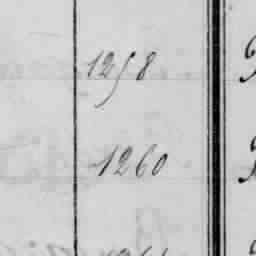 1258
1260